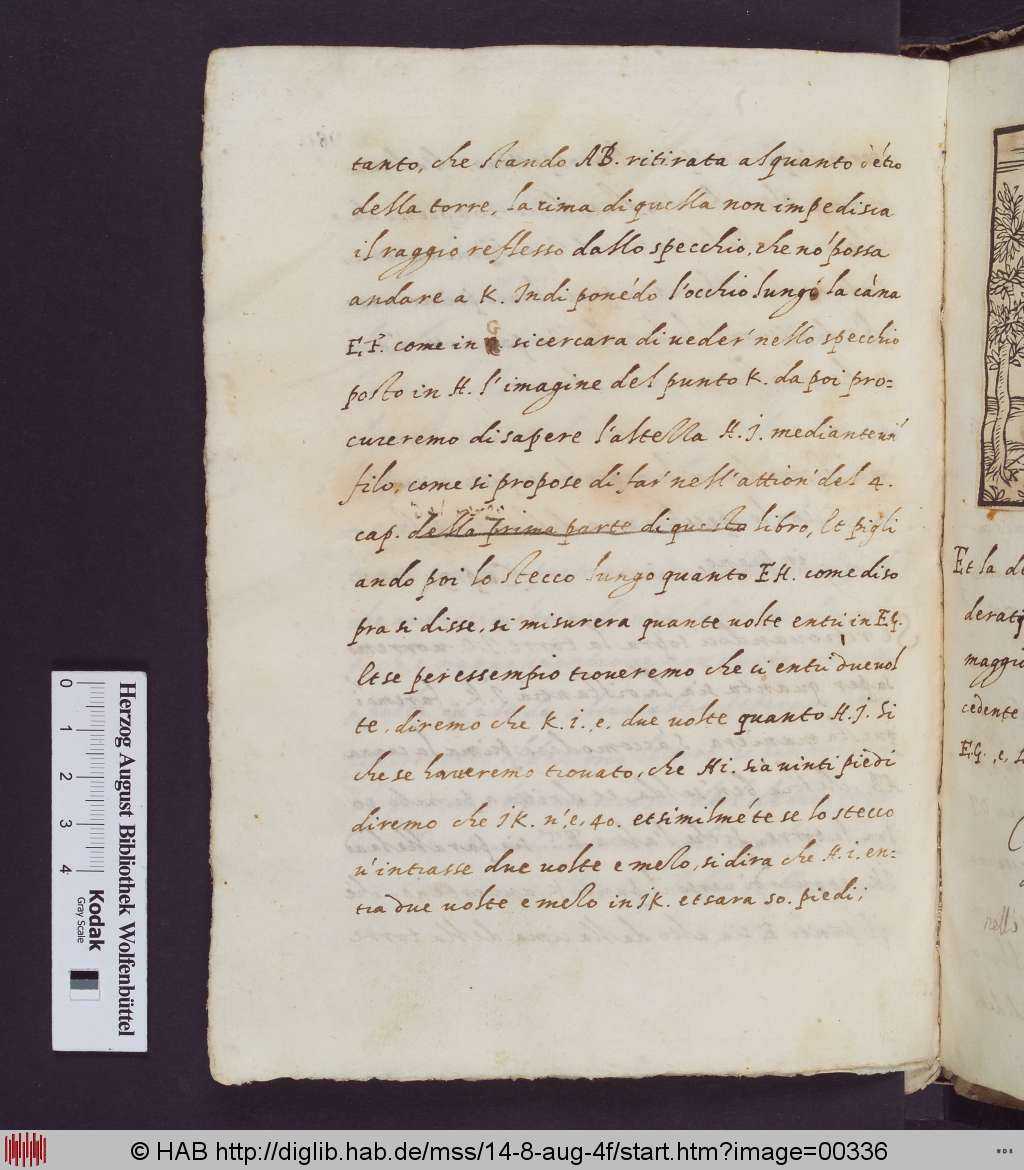 tanto, che stando AB. ritirata alquanto détro
della torre, la cima di quella non impedisca
il raggio reflesso dallo specchio, che nó possa
andare a K. Indi ponédo l'occhio lungi la càna
E,F. come in G sicercara di ueder' nello specchio
posto in H. l'imagine del punto K. da poi pro=
cureremo di sapere l'altella H.J. mediante un'
filo, come si propose di far' nell'attion' del 4.
cap. della prima parte di questo libro, Et pigli
ando poi lo stecco lungo quanto EH. come diso
pra si disse, si misurera quante uolte entri in EG.
Et se per essempio troueremo che ci entri due uol
te, diremo che K.i.,e, due uolte quanto H.J. Si
che se haueremo trouato, che Hi. sia uinti piedi
diremo che JK. n',e, 40. et similméte se lo stecco
u'intrasse due uolte e mezo, si dira che H.i. en=
tra due uolte e mezo in JK. et sara 50. piedi;
Et la
derat
maggio
cedente
E.G. ,e,
Herzog August Bibliothek Wolfenbüttel
Kodak
Gray Scale
0 1 2 3 4
© HAB http://diglib.hab.de/mss/14-8-aug-4f/start.htm?image=00336